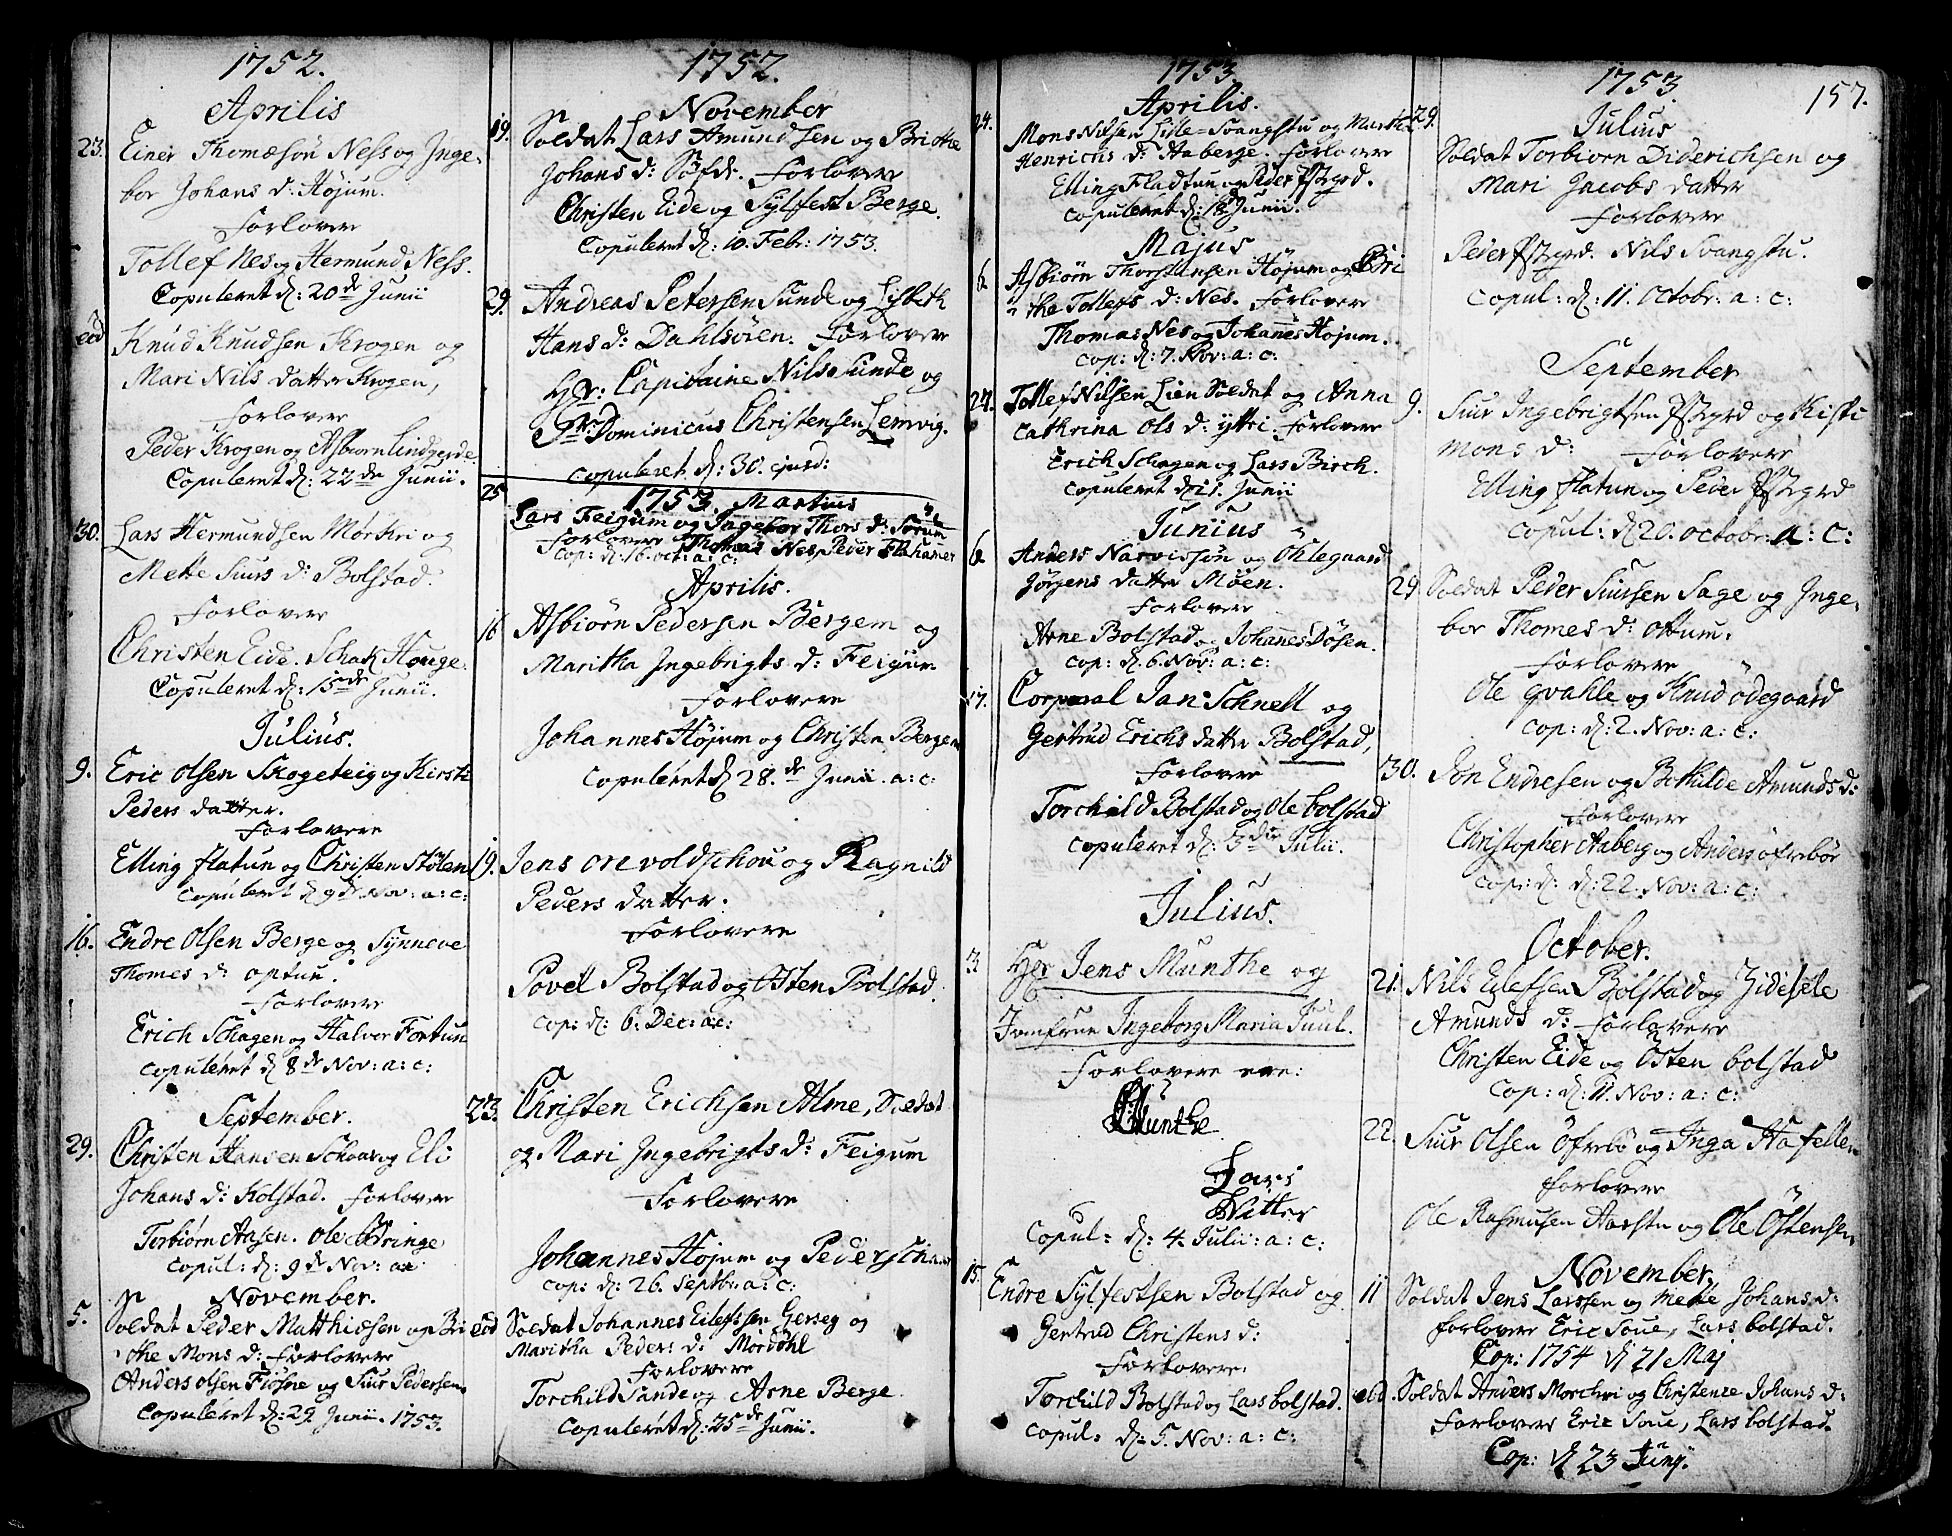 1752.
Aprilis
23. Einer Thomæsøn Ness og Inge-
bor Johans d: Højum.
Forlovere
Tollef Nes og Hermund Ness.
Copuleret d: 20de Junii
eod Knud Knudsen Krogen og
Mari Nils datter Krogen,
Forlovere
Peder Krogen og Asbiørn Lindgerde
Copuleret d: 22de Junii.
30. Lars Hermundsen Mørkri og
Mette Siurs d: Bolstad.
Forlovere
Christen Eide. Schak Houge.
Copuleret d: 15de Junii.
Julius.
9. Eric Olsen Skogeteig og Kirsti
Peders datter.
Forlovere
Elling flatun og Christen Stølen
Copuleret d 9de Nov: a: c:
16. Endre Olsen Berge og Synneve
Thomes d: optun.
Forlovere
Erich Schagen og Halver Fortun
copuleret d 8de Nov: a: c:
September.
29. Christen Hansen Schaar og Eli
Johans d: Kolstad. Forlovere
Torbiørn Aasen. Ole Bringe
Copul: d: 9de Nov: ac
November.
5. Soldat Peder Matthiesen og Bri
the Mons d: Forlovere
Anders Olsen Fiøsne og Siur Pedersen.
Copuleret d: 29 Junii. 1753.
1752.
November
19. Soldat Lars Amundsen og Brithe
Johans d: Søfde. Forlovere
Christen Eide og Sylfest Berge.
Copuleret d: 10. Febr: 1753.
29. Andreas Petersen Sunde og Lisbeth
Hans d: Dahlsøren. Forlovere
Hgr: Capitaine Nils Sunde og
Sr: Dominicus Christensen Lemvig.
copuleret d: 30. ejusd:
1753 Martius
25 Lars Feigum og Ingebor Thors d: Sørum
Forlovere Thomas Nes Peder Flahamer
Cop: d: 16. oct: a: c:
Aprilis.
16 Asbiørn Pedersen Bergem og
Maritha Ingebrigts d: Feigum
Forlovere
Johannes Højum og Christen Bergem
Copuleret d 28.de Junii. a: c:
19. Jens orevoldschou og Ragnild
Peders datter.
Forlovere
Povel Bolstad og Østen Bolstad.
Cop: d: 6. Dec: a: c:
23. Christen Erichsen Alme, Soldat
og Mari Ingebrigts d: Feigum
Forlovere
Johannes Højum og Peder
Cop: d: 26. Septbr: a: c:
eod Soldat Johannes Eilefsen Gerseg og
Maritha Peders d: Mørdøhl
Forlovere
Torchild Sande og Arne Berge
Copuleret d: 25de Junii.
1753
Aprilis.
24. Mons Nilsen Lisle=Svangstu og Marthe
Henrichs d: Haberge. Forlovere
Elling Fladtun og Peder Østgrd.
Copuleret d: 18 Junii.
Majus
6 Asbiørn Thorstensen Højum og Bri
the Tollefs d: Nes. Forlovere
Thomas Nes og Johannes Højum.
Cop: d: 7. Nov: a: c:
27. Tollef Nilsen Lien Soldat og Anna
Cathrina Ols d: yttri. Forlovere
Erich Schagen og Lars Birch.
Copuleret d: 21. Junii
Junius
6 Anders Narvissøn og Ohlegaard
Jørgens datter Møen.
Forlovere
Arne Bolstad og Johannes Døsen.
Cop: d. 6. Nov: a: c:
17. Corporal Jan Schnell og
Gertrud Erichs datter Bolstad,
Forlovere
Torchild Bolstad og Ole bolstad
Copuleret d: 5die Julii.
Julius.
3 Hgr Jens Munthe og
Jomfrue Ingeborg Maria Juul.
Forlovere ere:
Munthe
Lars
Witter
Copul: d: 4. Julii: a: c:
15. Endre Sylfestsen Bolstad og
Gertrud Christens d:
Forlovere:
Torchild Bolstad og Lars bolstad.
Copul: d: 5. Nov: a: c:
157.
1753
Julius
29. Soldat Torbiørn Diderichsen og
Mari Jacobs datter
Forlovere
Peder Østgrd. Nils Svangstu.
Copul: d: 11. Octobr: a: c:
September
9. Siur Ingebrigtsen Østgrd og Kisti
Mons d: Forlovere
Elling flatun og Peder Østgrd
Copul: d 20. octobr: a: c:
29 Soldat Peder Siursen Sage og Inge-
bor Thomes d: Ottum.
Forlovere
Ole Qvahle og Knud ødegaard
Cop: d: 2. Nov: a: c:
30. Jon Endresen og Bothilde Amunds d:
Forlovere
Christopher Aaberg og Anders øfrebø
Cop: d: d: 22. Nov: a: c:
October.
21. Nils Eilefsen Bolstad og Zidesele
Amunds d: Forlovere
Christen Eide og Østen bolstad
Cop: d: 11. Nov: a: c:
22. Siur Olsen Øfrebø og Inga Hafellen
Forlovere
Ole Rasmusen Harstu og Ole Østensen
November.
11 Soldat Jens Larssen og Mette Johans d:
forlovere Eric Soue, Lars bolstad.
Cop: 1754 d 21 Maj
eod. Soldat Anders Morchri og Christense Johans d:
Forlovere Eric Soue, Lars bolstad.
Cop: d 23 Junij.